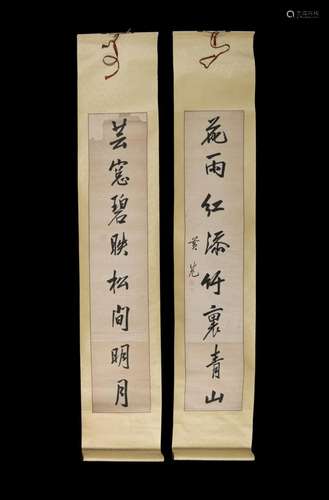 花雨红添竹裏青山
黄
芸窓碧映松間明月